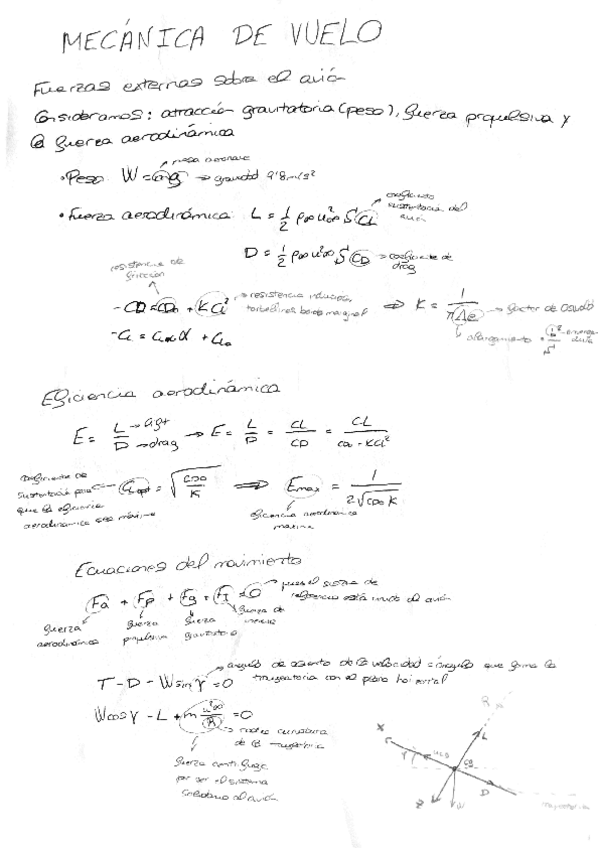 MECÁNICA DE VUELO
Fuerzas externas sobre el avión
Consideramos: atracción gravitatoria (peso), fuerza propulsiva y
la fuerza aerodinámica
• Peso W = mg → gravedad 9'8 m/s²
• Fuerza aerodinámica L = 1/2 ρ∞ u²∞ S CL
coeficiente
sustentación del
avión
D = 1/2 ρ∞ u²∞ S CD → coeficiente de
drag
resistencia de
fricción
- CD = CD0 + KCL² → resistencia inducida,
torbellinos borde marginal
⇒ K = 1/(πΛe) → factor de Oswald
alargamiento
- CL = CLα α + CL0
Eficiencia aerodinámica
E = L/D → E = L/D = CL/CD = CL/(CD0 - KCL²)
→ drag
Coeficiente de
sustentación para
que la eficiencia
aerodinámica sea máxima
CLopt = √(CD0/K) ⇒ Emax = 1/(2√(CD0 K))
eficiencia aerodinámica
máxima
Ecuaciones del movimiento
Fa + Fp + Fg + FI = 0 → pues el sistema de
referencia está unido al avión
fuerza
aerodinámica
fuerza
propulsiva
fuerza
gravitatoria
fuerza de
inercia
T - D - W sin γ = 0
ángulo de asiento de la velocidad = ángulo que forma la
trayectoria con el plano horizontal
W cos γ - L + m u²∞/R = 0
radio curvatura
de la trayectoria
fuerza centrífuga
por ser el sistema
solidario al avión
R
X
L
γ
u∞
CG
Z
W
D
trayectoria